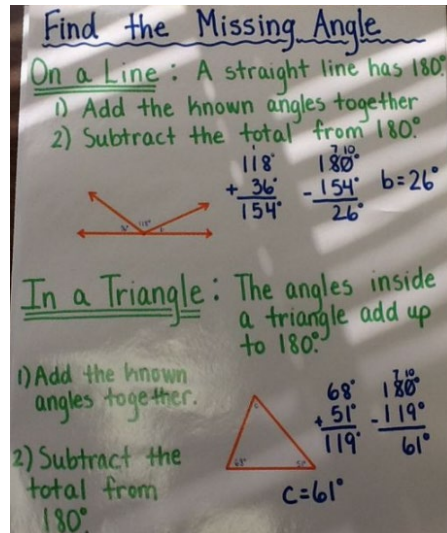 Find the Missing Angle
On a Line : A straight line has 180°
1) Add the known angles together
2) Subtract the total from 180°.
1
118°
+ 36°
154°
7 10
180°
- 154°
26°
b=26°
36°
118°
b
In a Triangle : The angles inside
a triangle add up
to 180°.
1) Add the known
angles together.
2) Subtract the
total from
180°.
68°
+ 51°
119°
7 10
180°
- 119°
61°
c
68°
c=61°